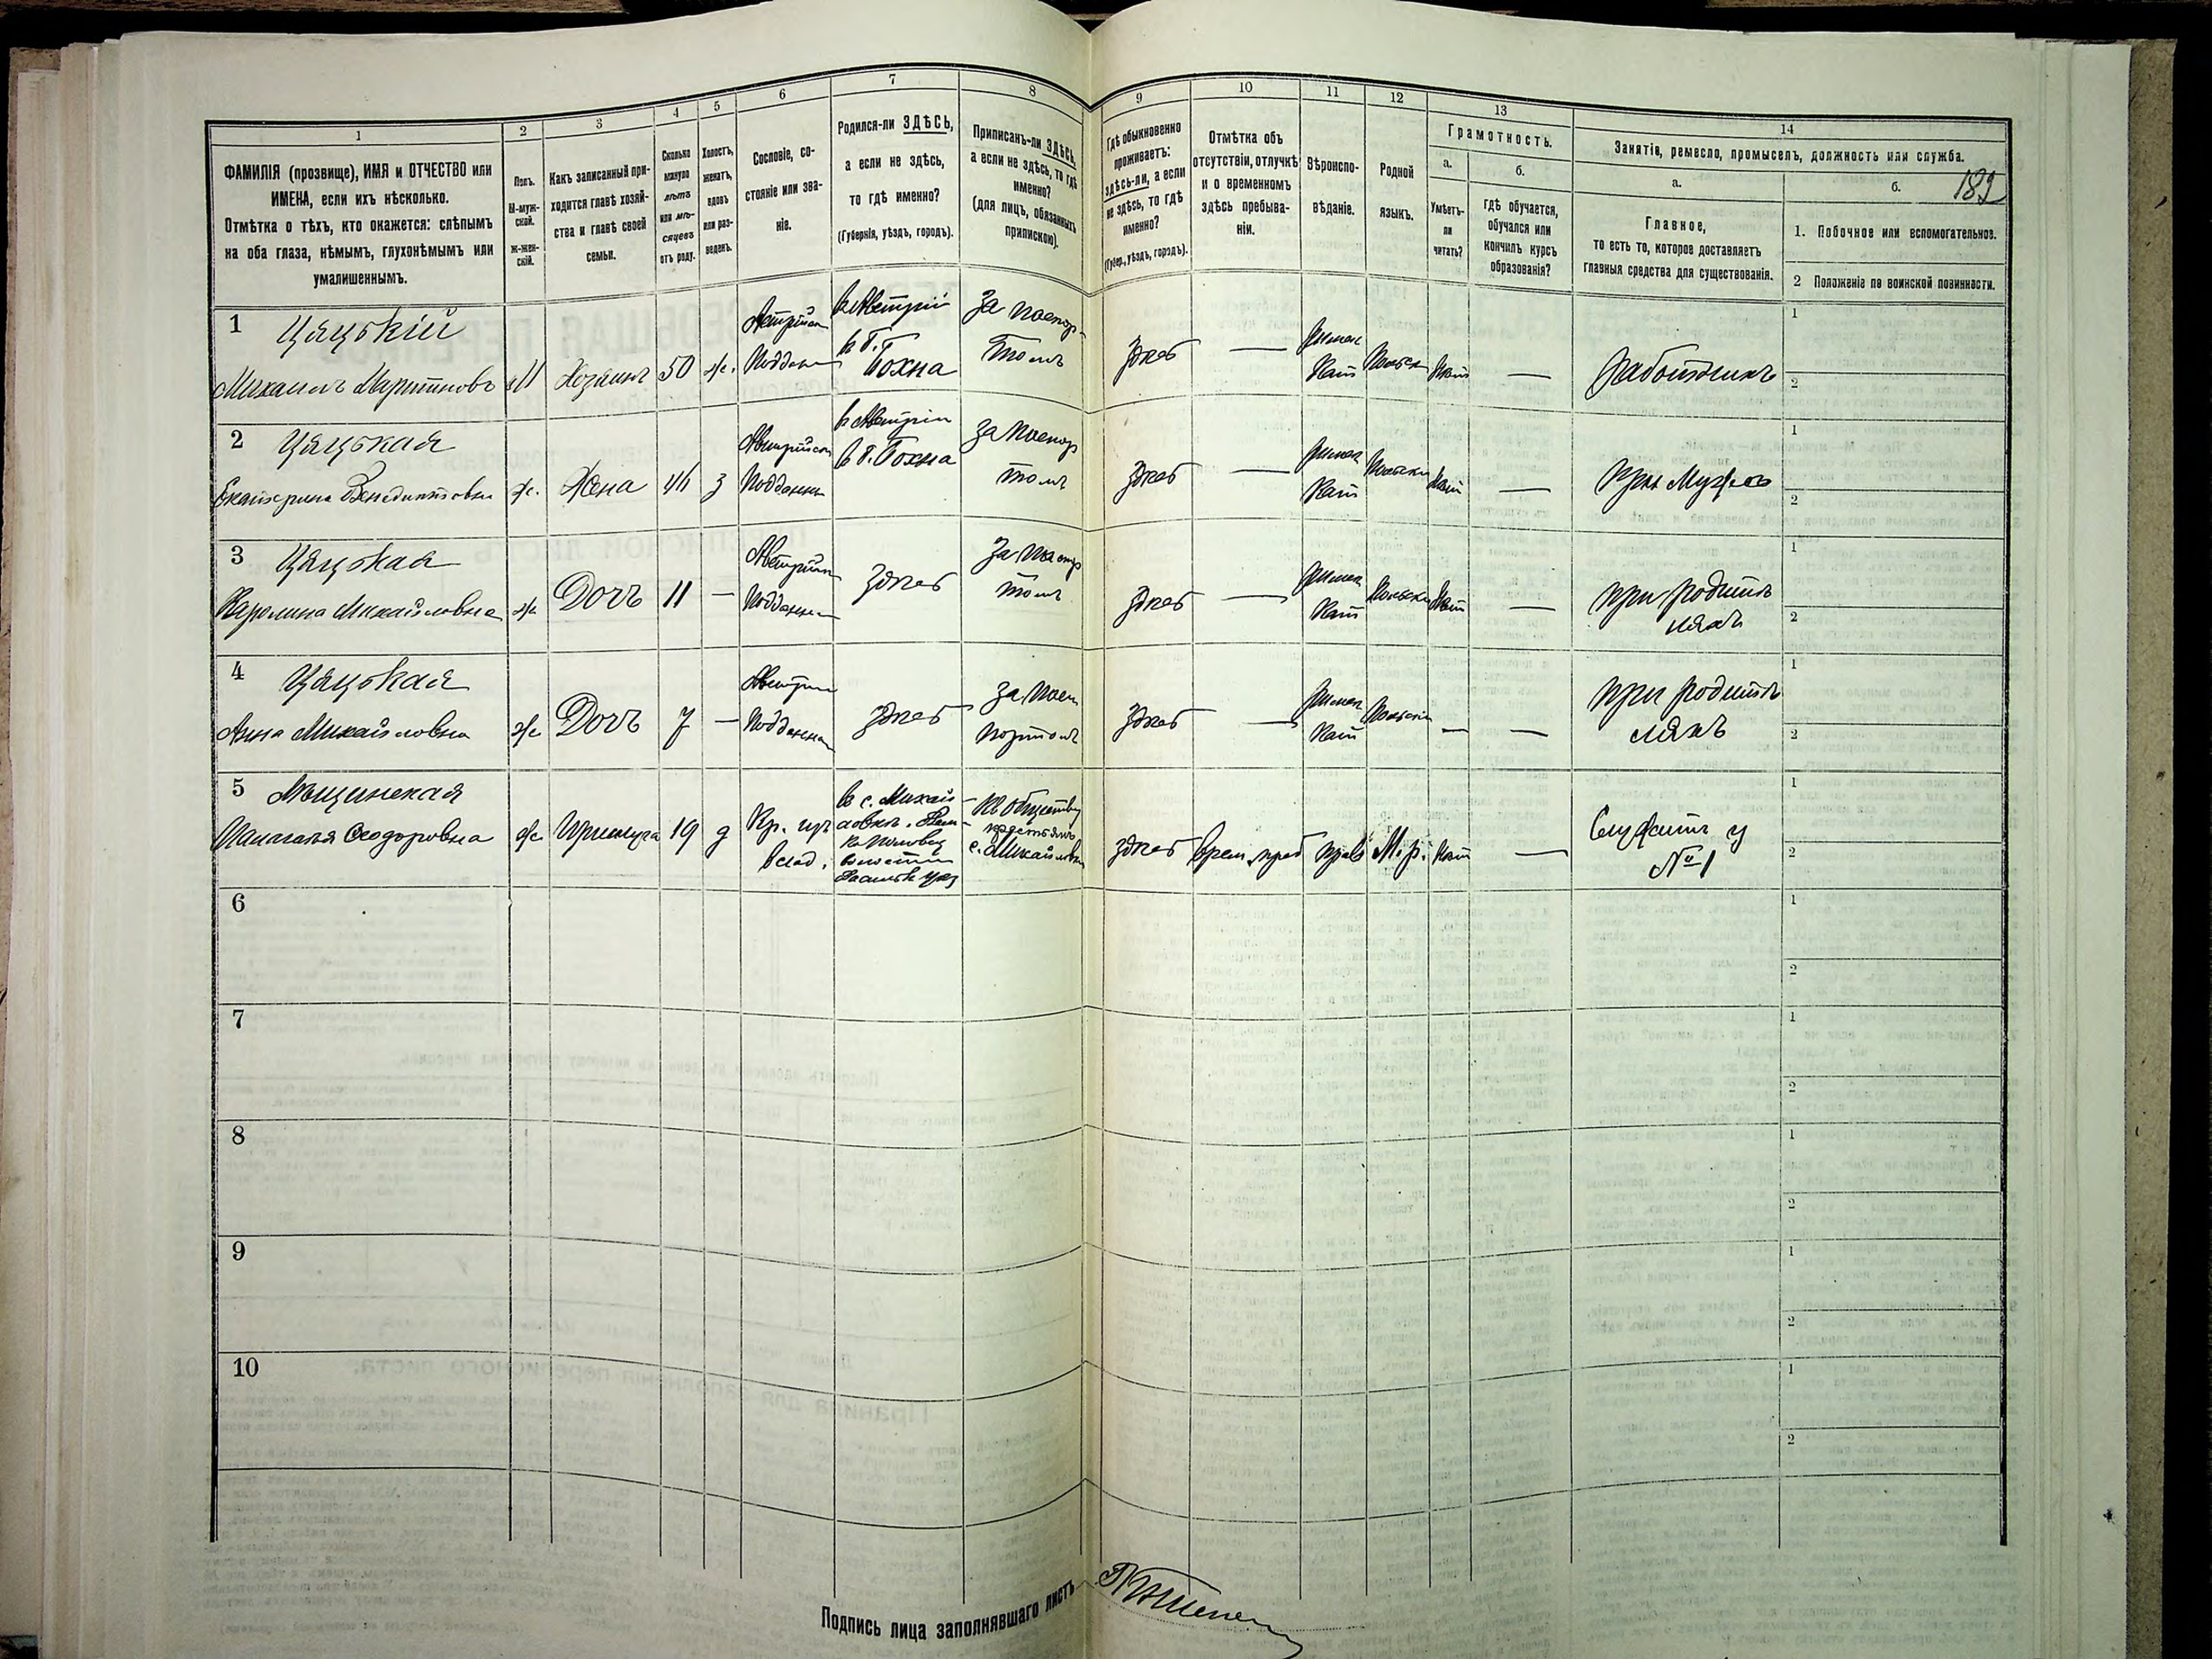 1
2
3
4
5
6
7
8
9
10
11
12
13
14
ФАМИЛІЯ (прозвище), ИМЯ и ОТЧЕСТВО или
ИМЕНА, если ихъ нѣсколько.
Отмѣтка о тѣхъ, кто окажется: слѣпымъ
на оба глаза, нѣмымъ, глухонѣмымъ или
умалишеннымъ.
Полъ.
М-муж-
ской.
ж-жен-
скій.
Какъ записанный при-
ходится главѣ хозяй-
ства и главѣ своей
семьи.
Сколько
минуло
лѣтъ
или мѣ-
сяцевъ
отъ роду.
Холостъ,
женатъ,
вдовъ
или раз-
веденъ.
Сословіе, со-
стояніе или зва-
ніе.
Родился-ли ЗДѢСЬ,
а если не здѣсь,
то гдѣ именно?
(Губернія, уѣздъ, городъ).
Приписанъ-ли ЗДѢСЬ,
а если не здѣсь, то гдѣ
именно?
(для лицъ, обязанныхъ
припискою).
Гдѣ обыкновенно
проживаетъ:
здѣсь-ли, а если
не здѣсь, то гдѣ
именно?
(Губер., уѣздъ, городъ).
Отмѣтка объ
отсутствіи, отлучкѣ
и о временномъ
здѣсь пребыва-
ніи.
Вѣроиспо-
вѣданіе.
Родной
языкъ.
Грамотность.
а.
Умѣетъ-
ли
читать?
б.
гдѣ обучается,
обучался или
кончилъ курсъ
образованія?
Занятіе, ремесло, промыселъ, должность или служба.
а.
Главное,
то есть то, которое доставляетъ
главныя средства для существованія.
б.
182
1. Побочное или вспомогательное.
2 Положеніе по воинской повинности.
1 Цяцькій
Михаилъ Мартиновъ
М
Хозяинъ
50
ж.
въ Австріи
в г.
Бохна
за паспор-
томъ
здѣсь
—
Римск
Кат
Польск
Нѣт
—
Работникъ
1
2
2 Цяцькая
Екатерина Бенедиктовна
ж.
Жена
46
з
Австрійск
Подданн
в Австріи
в г. Бохна
за паспор
томъ
здѣсь
—
Римск
Кат
Польски
Нѣт
—
При Мужѣ
1
2
3 Цяцькая
Каролина Михайловна
ж
Дочъ
11
—
Подданн
здѣсь
томъ
здѣсь
—
Римск
Кат
Польски
Нѣт
—
при родите
ляхъ
1
2
4 Цяцькая
Анна Михайловна
ж
Дочъ
7
—
Подданна
здѣсь
за пас
портомъ
здѣсь
—
Римск
Кат
—
—
при родите
ляхъ
1
2
5
Феодоровна
ж
Прислуга
19
д
Кр. изъ
влад.
в с. Михай
ловкѣ
Къ обществу
крестьянъ
с. Михайловки
здѣсь
врем. преб
прав
М. р.
Нѣт
—
Служитъ у
№ 1
1
2
6
1
2
7
1
2
8
1
2
9
1
2
10
1
2
Подпись лица заполнявшаго листъ